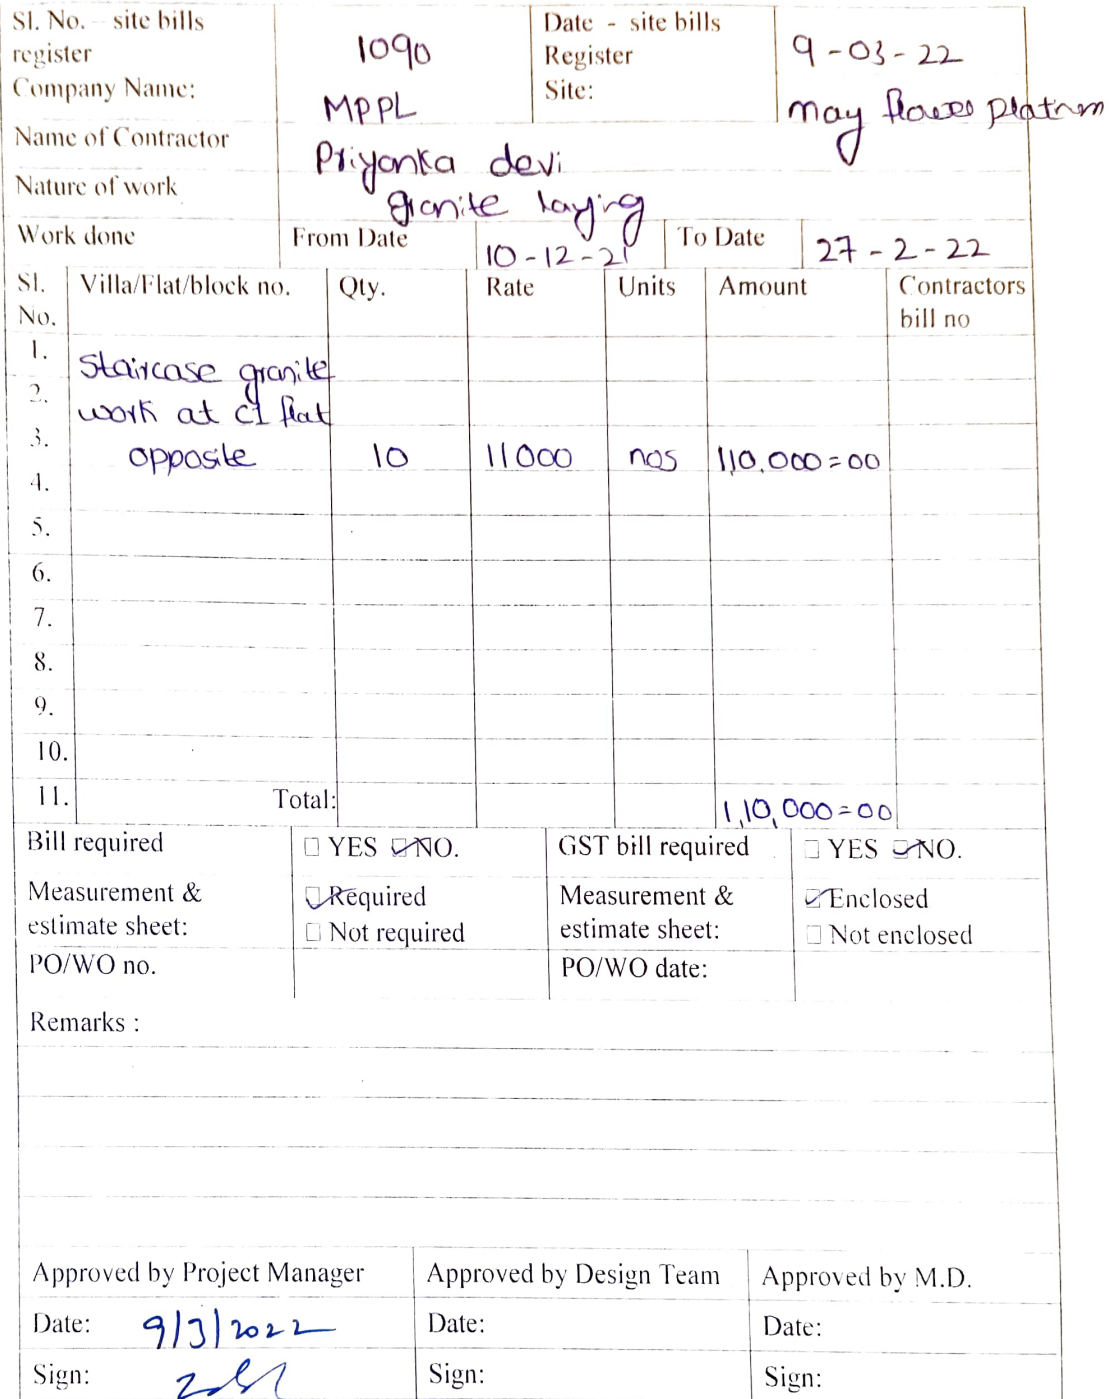 Sl. No. – site bills register 1090 Date - site bills Register 9-03-22
Company Name: MPPL Site: may flower platnum
Name of Contractor Priyanka devi
Nature of work granite laying
Work done From Date 10-12-21 To Date 27-2-22
Sl. No. Villa/Flat/block no. Qty. Rate Units Amount Contractors bill no
1. Staircase granite
2. work at C1 flat
3. opposite 10 11000 nos 110,000=00
4.
5.
6.
7.
8.
9.
10.
11. Total: 1,10,000=00
Bill required ☐ YES ☑ NO. GST bill required ☐ YES ☑ NO.
Measurement & estimate sheet: ☑ Required ☐ Not required Measurement & estimate sheet: ☑ Enclosed ☐ Not enclosed
PO/WO no. PO/WO date:
Remarks :
Approved by Project Manager Approved by Design Team Approved by M.D.
Date: 9/3/2022 Date: Date:
Sign: Sign: Sign: